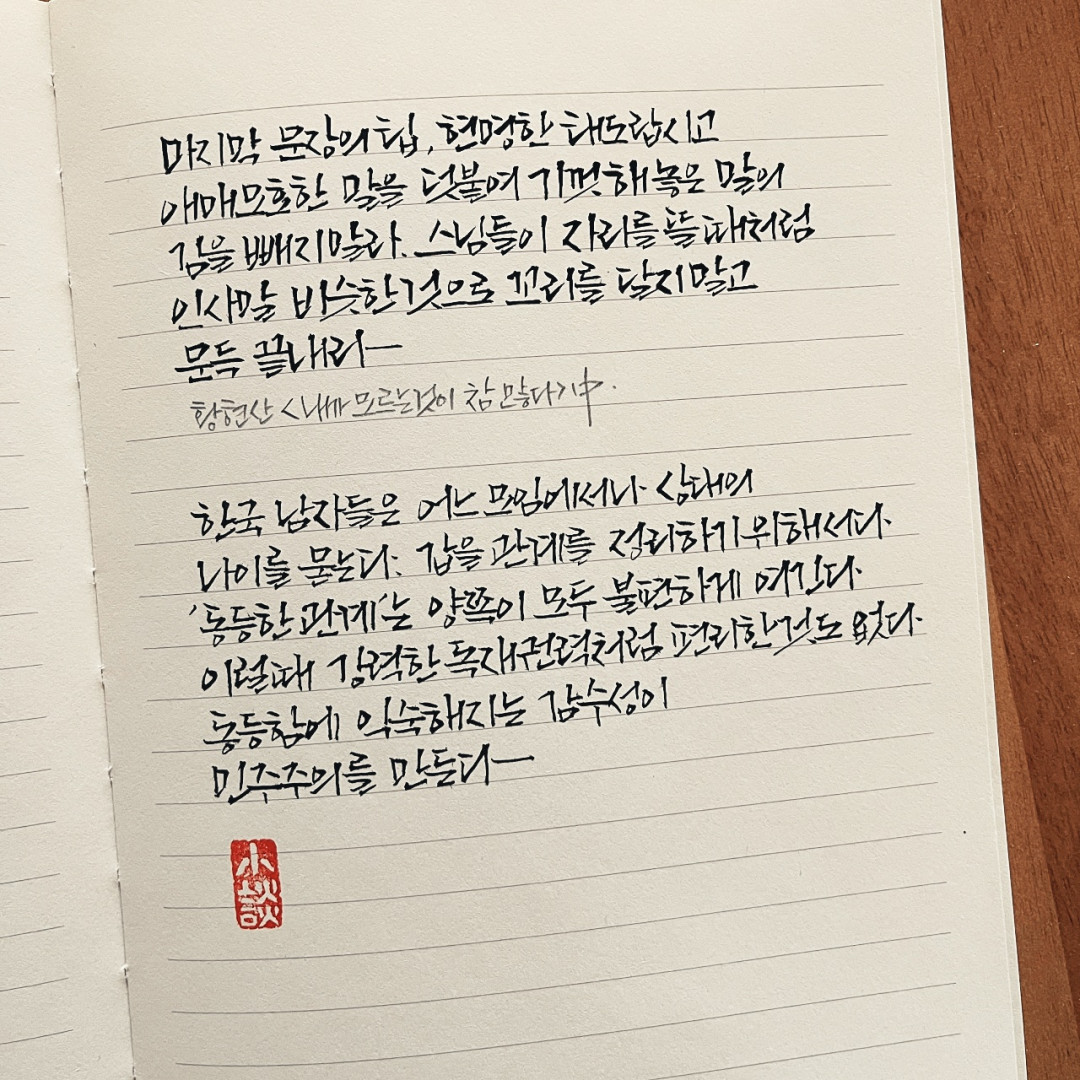 마지막 문장의 팁, 현명한 태도랍시고
애매모호한 말을 덧붙여 기껏해놓은 말의
김을 빼지말라. 스님들이 자리를 뜰때처럼
인사말 비슷한것으로 꼬리를 달지말고
문득 끝내라—
황현산 <내가 모르는것이 참 많다>中.
한국 남자들은 어느 모임에서나 상대의
나이를 묻는다. 갑을 관계를 정리하기위해서다.
'동등한 관계'는 양쪽이 모두 불편하게 여긴다.
이럴때 강력한 독재권력처럼 편리한것도 없다.
동등함에 익숙해지는 감수성이
민주주의를 만든다—
小談